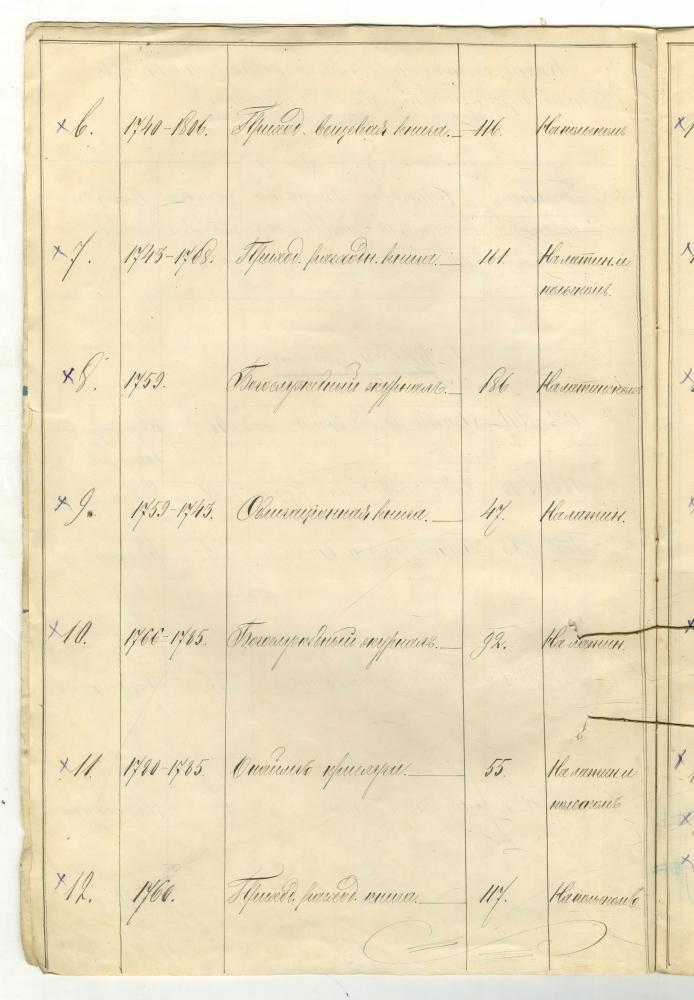 6. 1740-1806. Приход. вещевая книга. 116. На польскомъ
7. 1743-1768. Приход. расходн. книга. 161 На латин. и
польскомъ.
8. 1759. Богослужебный журналъ. 186 На латинскомъ
9. 1759-1743. Облигаціонная книга. 47. На латин.
10. 1766-1785. Богослужебный журналъ. 92. На латин.
11. 1780-1785. О наймѣ прислуги. 55. На латин. и
польскомъ
12. 1760. Приход. расход. книга. 117. На польскомъ